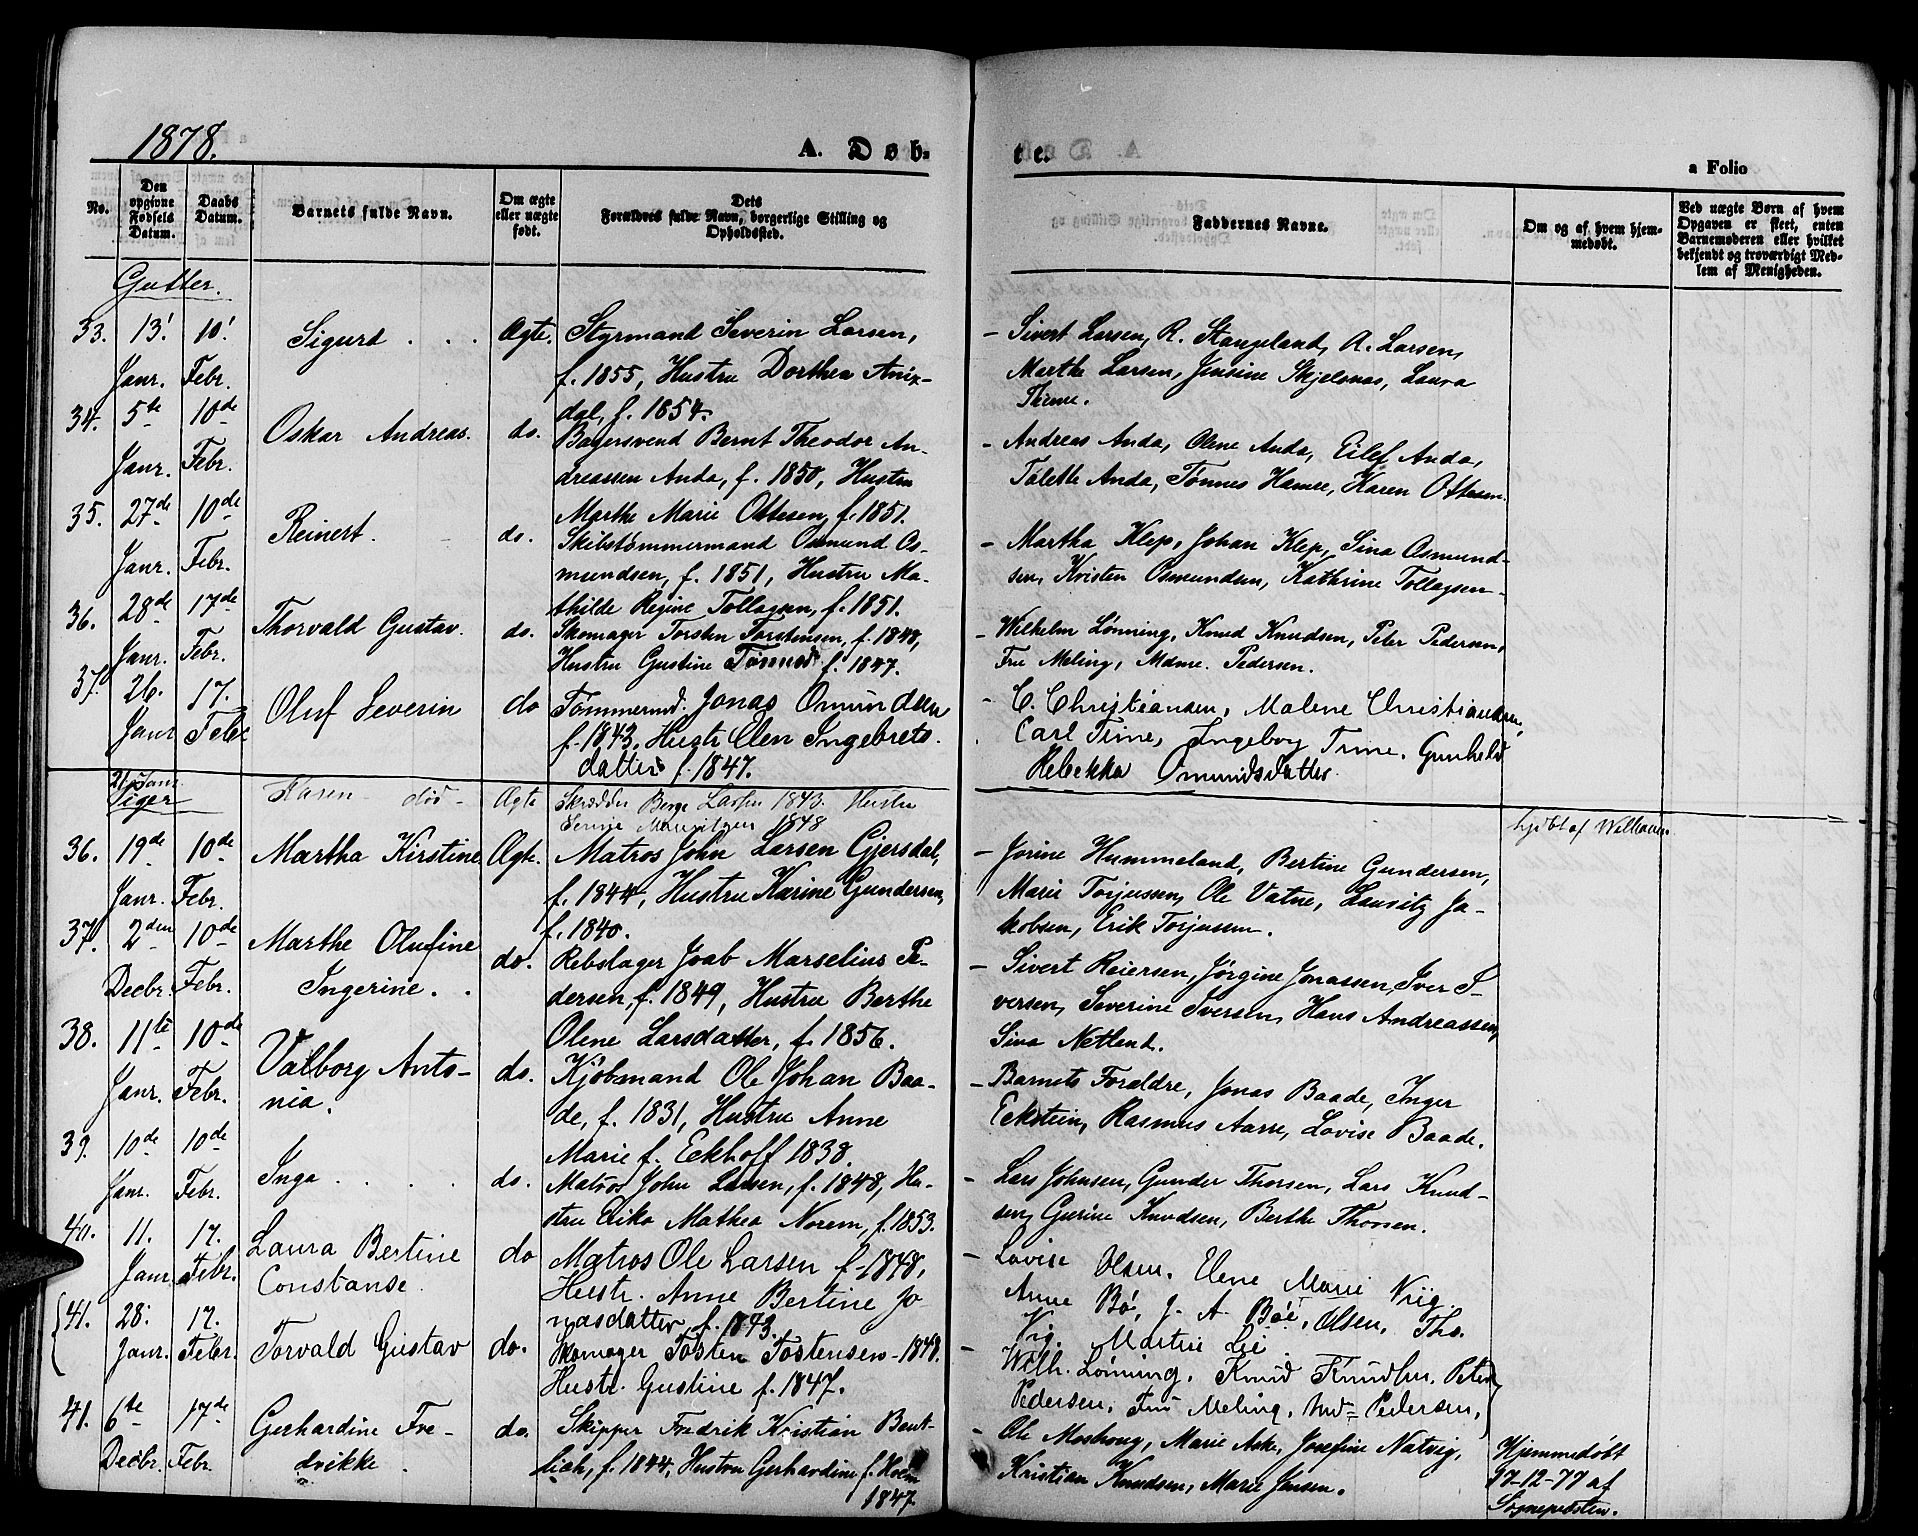 1878.
A. Døb-
te.
a Folio
No.
Den opgivne Fødsels Datum.
Daabs Datum.
Barnets fulde Navn.
Om ægte eller uægte født.
Dets Forældres fulde Navn, borgerlige Stilling og Opholdssted.
Faddernes Navne.
Om og af hvem hjemmedøbt.
Ved uægte Børn af hvem Opgaven er skeet, enten Barnemoderen eller hvilket bekjendt og troværdigt Medlem af Menigheden.
Gutter.
33. 13' 10' Sigurd . . . Ægte. Styrmand Severin Larsen, - Sivert Larsen, R. Stangeland, A. Larsen,
Janr. Febr. f. 1855, Hustru Dorthea Anix- Marthe Larsen, Jensine Skjelsnas, Laura
dal, f. 1854. Thime.
34. 5te 10de Oskar Andreas. do. Bagersvend Bernt Theodor An- - Andreas Anda, Olene Anda, Eilef Anda,
Janr. Febr. dreassen Anda, f. 1850, Hustru Talette Anda, Tønnes Hamre, Karen Ottesen.
Marthe Marie Ottesen, f. 1851.
35. 27de 10de Reinert. do. Skibstømmermand Osmund Os- - Martha Klep, Johan Klep, Sina Osmund-
Janr. Febr. mundsen, f. 1851, Hustru Ma- sen, Kristen Osmundsen, Kathrine Tollagsen.
thilde Regine Tollagsen, f. 1851.
36. 28de 17de Thorvald Gustav. do. Skomager Torsten Torstensen, f. 1848, - Wilhelm Lønning, Knud Knudsen, Peter Pedersen,
Janr. Febr. Hustru Gustine f. 1847. Fru Meling, Mdme. Pedersen.
37. 26. 17. Oluf Severin do Tømmermd. Jonas Omundsen - C. Christiansen, Malene Christiansen,
Janr Febr f. 1843. Hustr Elen Ingebrets- Carl Trine, Ingeborg Trine, Gunhild
datter f. 1847. Rebekka Omundsdatter.
21 Janr.
Piger Karen - død - Ægte Skrædder Berge Larsen 1843. Hustru
Mauritzen 1848 hjdbt af
36. 19de 10de Martha Kirstine Ægte. Matros John Larsen Gjersdal, - Jorine Hummeland, Bertine Gundersen,
Janr. Febr. f. 1844, Hustru Karine Gundersen, Marie Torjussen, Ole Vatne, Lauritz Ja-
f. 1840. kobsen, Erik Torjussen.
37. 2den 10de Marthe Olufine do. Rebslager Joab Marselius Pe- - Sivert Reiersen, Jørgine Jonassen, Iver I-
Decbr. Febr. Ingerine. . dersen, f. 1849, Hustru Berthe versen, Severine Iversen, Hans Andreassen,
Olene Larsdatter, f. 1856. Sina Netland.
38. 11te 10de Valborg Anto- do. Kjøbmand Ole Johan Baa- - Barnets Forældre, Jonas Baade, Inger
Janr. Febr. nia. de, f. 1831, Hustru Anne Eckstein, Rasmus Aarre, Lovise Baade.
Marie f. Eckhoff 1838.
39. 10de 10de Inga . . . . do. Matros John Larsen, f. 1848, Hu- - Lars Johnsen, Gunder Thorsen, Lars Knud-
Janr. Febr. stru Eika Mathea Norem, f. 1853. sen, Gurine Knudsen, Berthe Thorsen.
40. 11. 17. Laura Bertine do Matros Ole Larsen f. 1848, - Lovise Olsen. Elene Marie Viig
Janr. Febr. Constanse. Hustr. Anne Bertine Jo- Anne Bö, J. A. Böe, Olsen, Ths.
nasdatter f. 1843. Vig. Martin Lei
41. 28. 17. Torvald Gustav do. Skomager Tosten Tostensen 1848. - Wilh. Lønning, Knud Knudsen, Peter
Janr. Febr. Hustr. Gustine f. 1847. Pedersen, Fru Meling, Md= Pedersen,
41. 6te 17de Gerhardine Fre- do. Skipper Fredrik Kristian Bent- - Ole Mosbroug, Marie Aske, Josefine Natvig, Hjemmedøbt
Decbr. Febr. drikke . sich, f. 1844, Hustru Gerhardine f. Holm Kristian Knudsen, Marie Jensen. 27-12-77 af
1847 Sognepræsten.